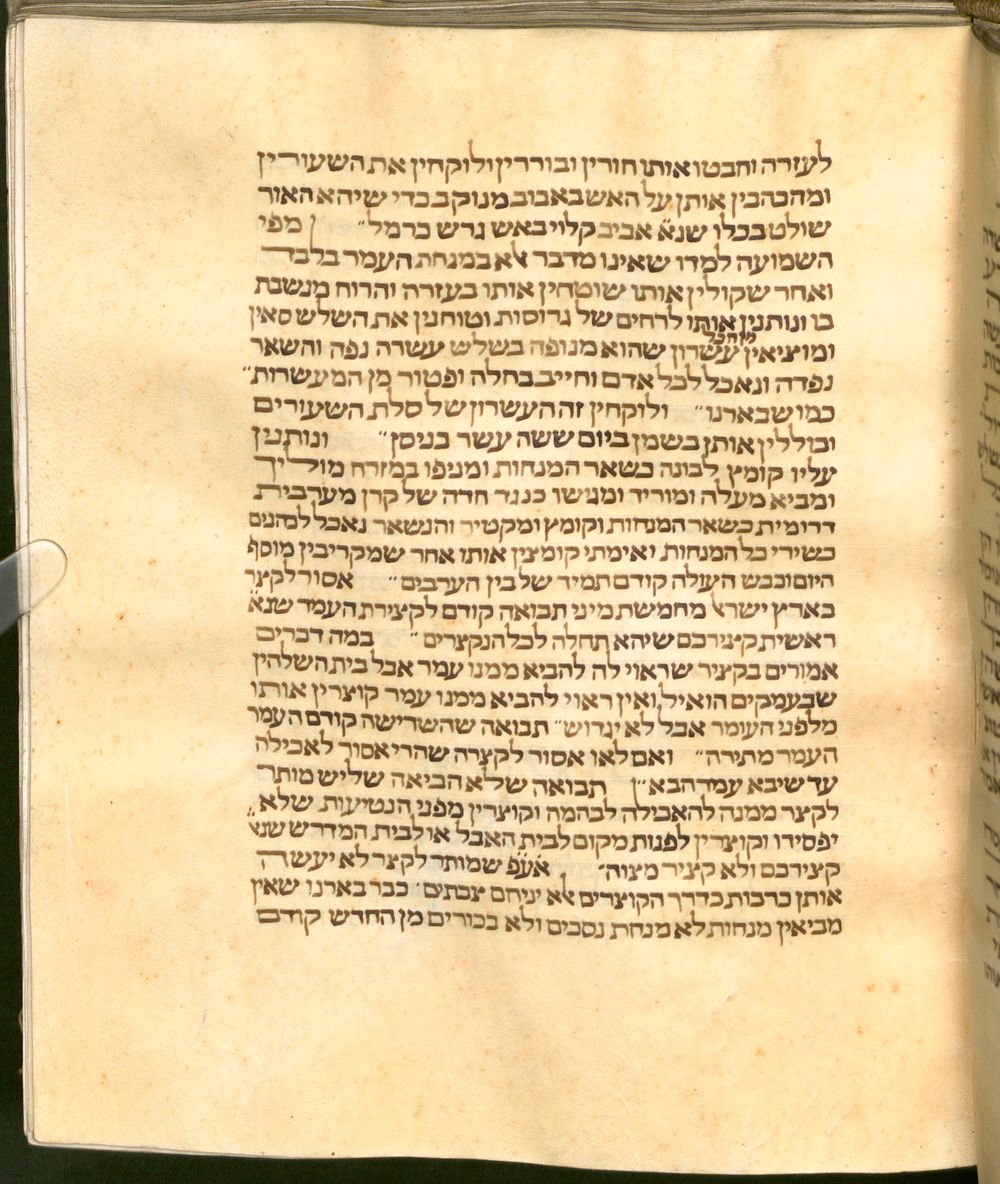 לעזרה וחבטו אותו וזורין ובוררין ולוקחין את השעורין
ומהבהבין אותן על האש באבוב מנוקב כדי שיהא האור
שולט בכלו שנ״א אביב קלוי באש גרש כרמל״ מפי
השמועה למדו שאינו מדבר אלא במנחת העמר בלבד
ואחר שקולין אותו שוטחין אותו בעזרה והרוח מנשבת
בו ונותנין אותו לרחים של גרוסות וטוחנין את השלש סאין
ומוציאין מן הכל עשרון שהוא מנופה בשלש עשרה נפה והשאר
נפדה ונאכל לכל אדם וחייב בחלה ופטור מן המעשרות״
כמו שבארנו״ ולוקחין זה העשרון של סלת השעורים
ובוללין אותן בשמן ביום ששה עשר בניסן״ ונותנין
עליו קומץ לבונה כשאר המנחות ומניפו במזרח מוליך
ומביא מעלה ומוריד ומגישו כנגד חדה של קרן מערבית
דרומית כשאר המנחות וקומץ ומקטיר והנשאר נאכל לכהנים
כשירי כל המנחות ואימתי קומצין אותו אחר שמקריבין מוסף
היום וכבש העולה קודם תמיד של בין הערבים״ אסור לקצר
בארץ ישראל מחמשת מיני תבואה קודם לקצירת העמר שנא
ראשית קצירכם שיהא תחלה לכל הנקצרים״ במה דברים
אמורים בקציר שראוי לה להביא ממנו עמר אבל בית השלהין
שבעמקים הואיל ואין ראוי להביא ממנו עמר קוצרין אותו
מלפני העומר אבל לא יגדוש״ תבואה שהשרישה קודם העמר
העמר מתירה״ ואם לאו אסור לקצרה שהרי אסור לאכילה
עד שיבא עמר הבא״ תבואה שלא הביאה שליש מותר
לקצר ממנה להאכילה לבהמה וקוצרין מפני הנטיעות שלא
יפסידו וקוצרין לפנות מקום לבית האבל או לבית המדרש שנא״
קצירכם ולא קציר מצוה״ אע״פ שמותר לקצר לא יעשה
אותן כרבות כדרך הקוצרים אלא יניחם צבתים׳ כבר בארנו שאין
מביאין מנחות לא מנחת נסכים ולא בכורים מן החדש קודם